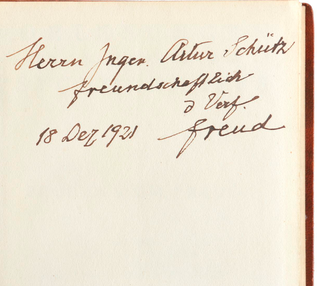 Herrn Ingen. Artur Schütz
freundschaftlich
d Verf.
18 Dez 1921 Freud